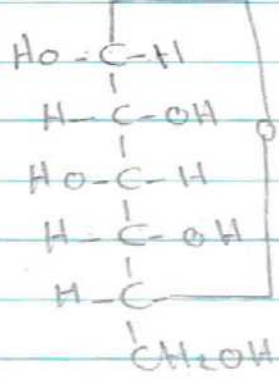 HO-C-H
H-C-OH
O
HO-C-H
H-C-OH
H-C-
CH₂OH